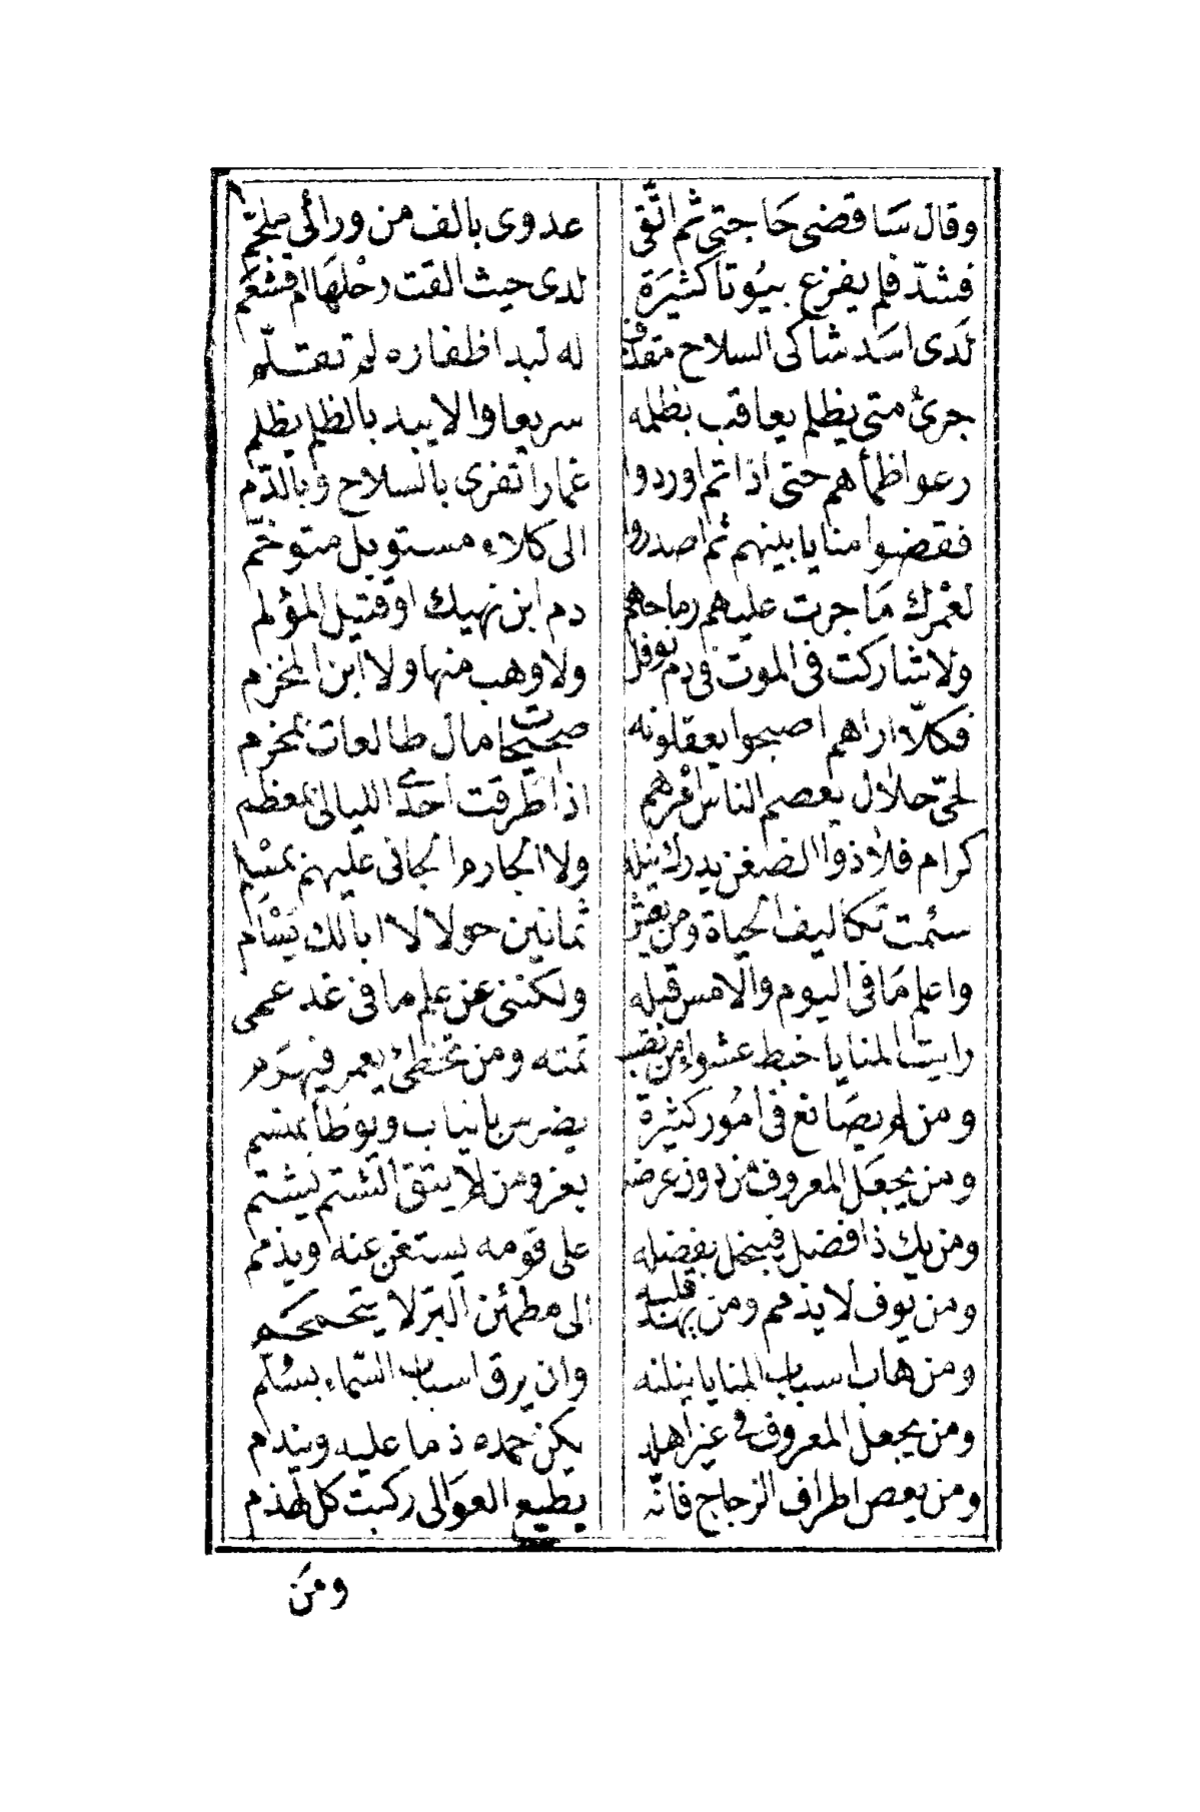 وقال ساقضى حاجتى ثم اتّقى عدوى بالف من ورائى ملجّم
فشدّ فلم يفزع بيوتا كثيرة لدى حيث القت رحلها ام قشعم
لدى اسد شاكى السلاح مقذف له لبد اظفاره لم تقلّم
جرئ متى يظلم يعاقب بظلمه سريعا والا يبد بالظلم يظلم
رعوا ظمأهم حتى اذا تم اوردوا غمارا تفرى بالسلاح وبالدّم
فقضوا منايا بينهم ثم اصدروا الى كلاء مستوبل متوخّم
لعمرك ما جرت عليهم رماحهم دم ابن نهيك او قتيل المؤلم
ولا شاركت فى الموت فى دم نوفل ولا وهب منها ولا ابن المخزم
فكلّا اراهم اصبحوا يعقلونه صحيحات مال طالعات بمخرم
لحىّ حلال يعصم الناس امرهم اذا طرقت احدى الليالى بمعظم
كرام فلا ذوا الضغن يدرك تبله ولا الجارم الجانى عليهم بمسلم
سئمت تكاليف الحياة ومن يعش ثمانين حولا لا ابالك يسأم
واعلم ما فى اليوم والامس قبله ولكننى عن علم ما فى غد عمى
رايت المنايا خبط عشواء من تصب تمته ومن تخطئ يعمر فيهرم
ومن لم يصانع فى امور كثيرة يضرس بانياب ويوطأ بمنسم
ومن يجعل المعروف من دون عرضه يفر ومن لا يتق الشتم يشتم
ومن يك ذا فضل فيبخل بفضله على قومه يستغن عنه ويذمم
ومن يوف لا يذمم ومن يهد قلبه الى مطمئن البرّ لا يتجمجم
ومن هاب اسباب المنايا ينلنه وان يرق اسباب السّماء بسلّم
ومن يجعل المعروف فى غير اهله يكن حمده ذما عليه ويندم
ومن يعص اطراف الزجاج فانّه يطيع العوالى ركبت كل لهذم
ومن